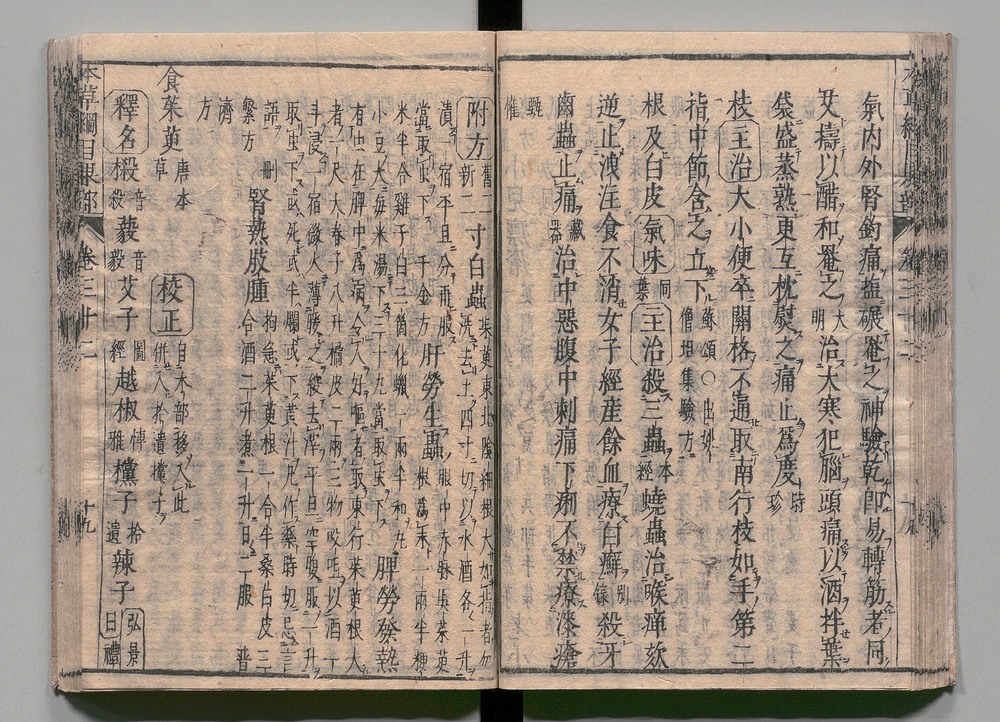 氣內外腎釣痛塩碾罨之神驗乾卽易轉筋者同
艾擣以醋和罨之大明治大寒犯腦頭痛以酒拌葉
袋盛蒸熟更互枕熨之痛止爲度時珍
枝主治大小便卒關格不通取南行枝如手第二
指中節含之立下蘇頌○出姚僧坦集驗方
根及白皮氣味同葉主治殺三蟲本經蟯蟲治喉痺欬
逆止洩注食不消女子經產餘血療白癬別錄殺牙
齒蟲止痛藏器治中惡腹中刺痛下痢不禁療漆瘡
甄權
附方舊二新二寸白蟲茱萸東北陰細根大如指者勿洗去土四寸切以水酒各一升
漬一宿平旦分再服當取蟲下千金方肝勞生蟲眼中赤脉吳茱萸根爲末一兩半粳
米半合雞子白三箇化蠟一兩半和丸小豆大每米湯下三十丸當取蟲下脾勞發熱
有蟲在脾中爲病令人好嘔者取東行茱萸根大者一尺大麻子八升橘皮二兩三物㕮咀以酒一
斗浸一宿微火薄暖之絞去滓平旦空腹服一升取蟲下或死或半爛或下黃汁凡作藥時切忌言
語刪繁方腎熱肢腫拘急茱萸根一合半桑白皮三合酒二升煮一升日二服普濟
方
食茱萸唐本草校正自木部移入此併入拾遺欓子
釋名樧音殺藙音毅艾子圖經越椒博雅欓子拾遺辣子弘景日禮
本草綱目果部
卷三十二
十九